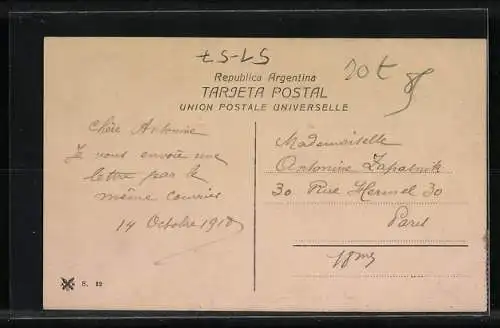 57-57
20t
Republica Argentina
TARJETA POSTAL
UNION POSTALE UNIVERSELLE
Chère Antonine
Je vous envoie une
lettre par le
même courrier
14 Octobre 1910
Mademoiselle
Antonine Zapalnik
30 Rue Hermel 30
Paris
18me
S. 22